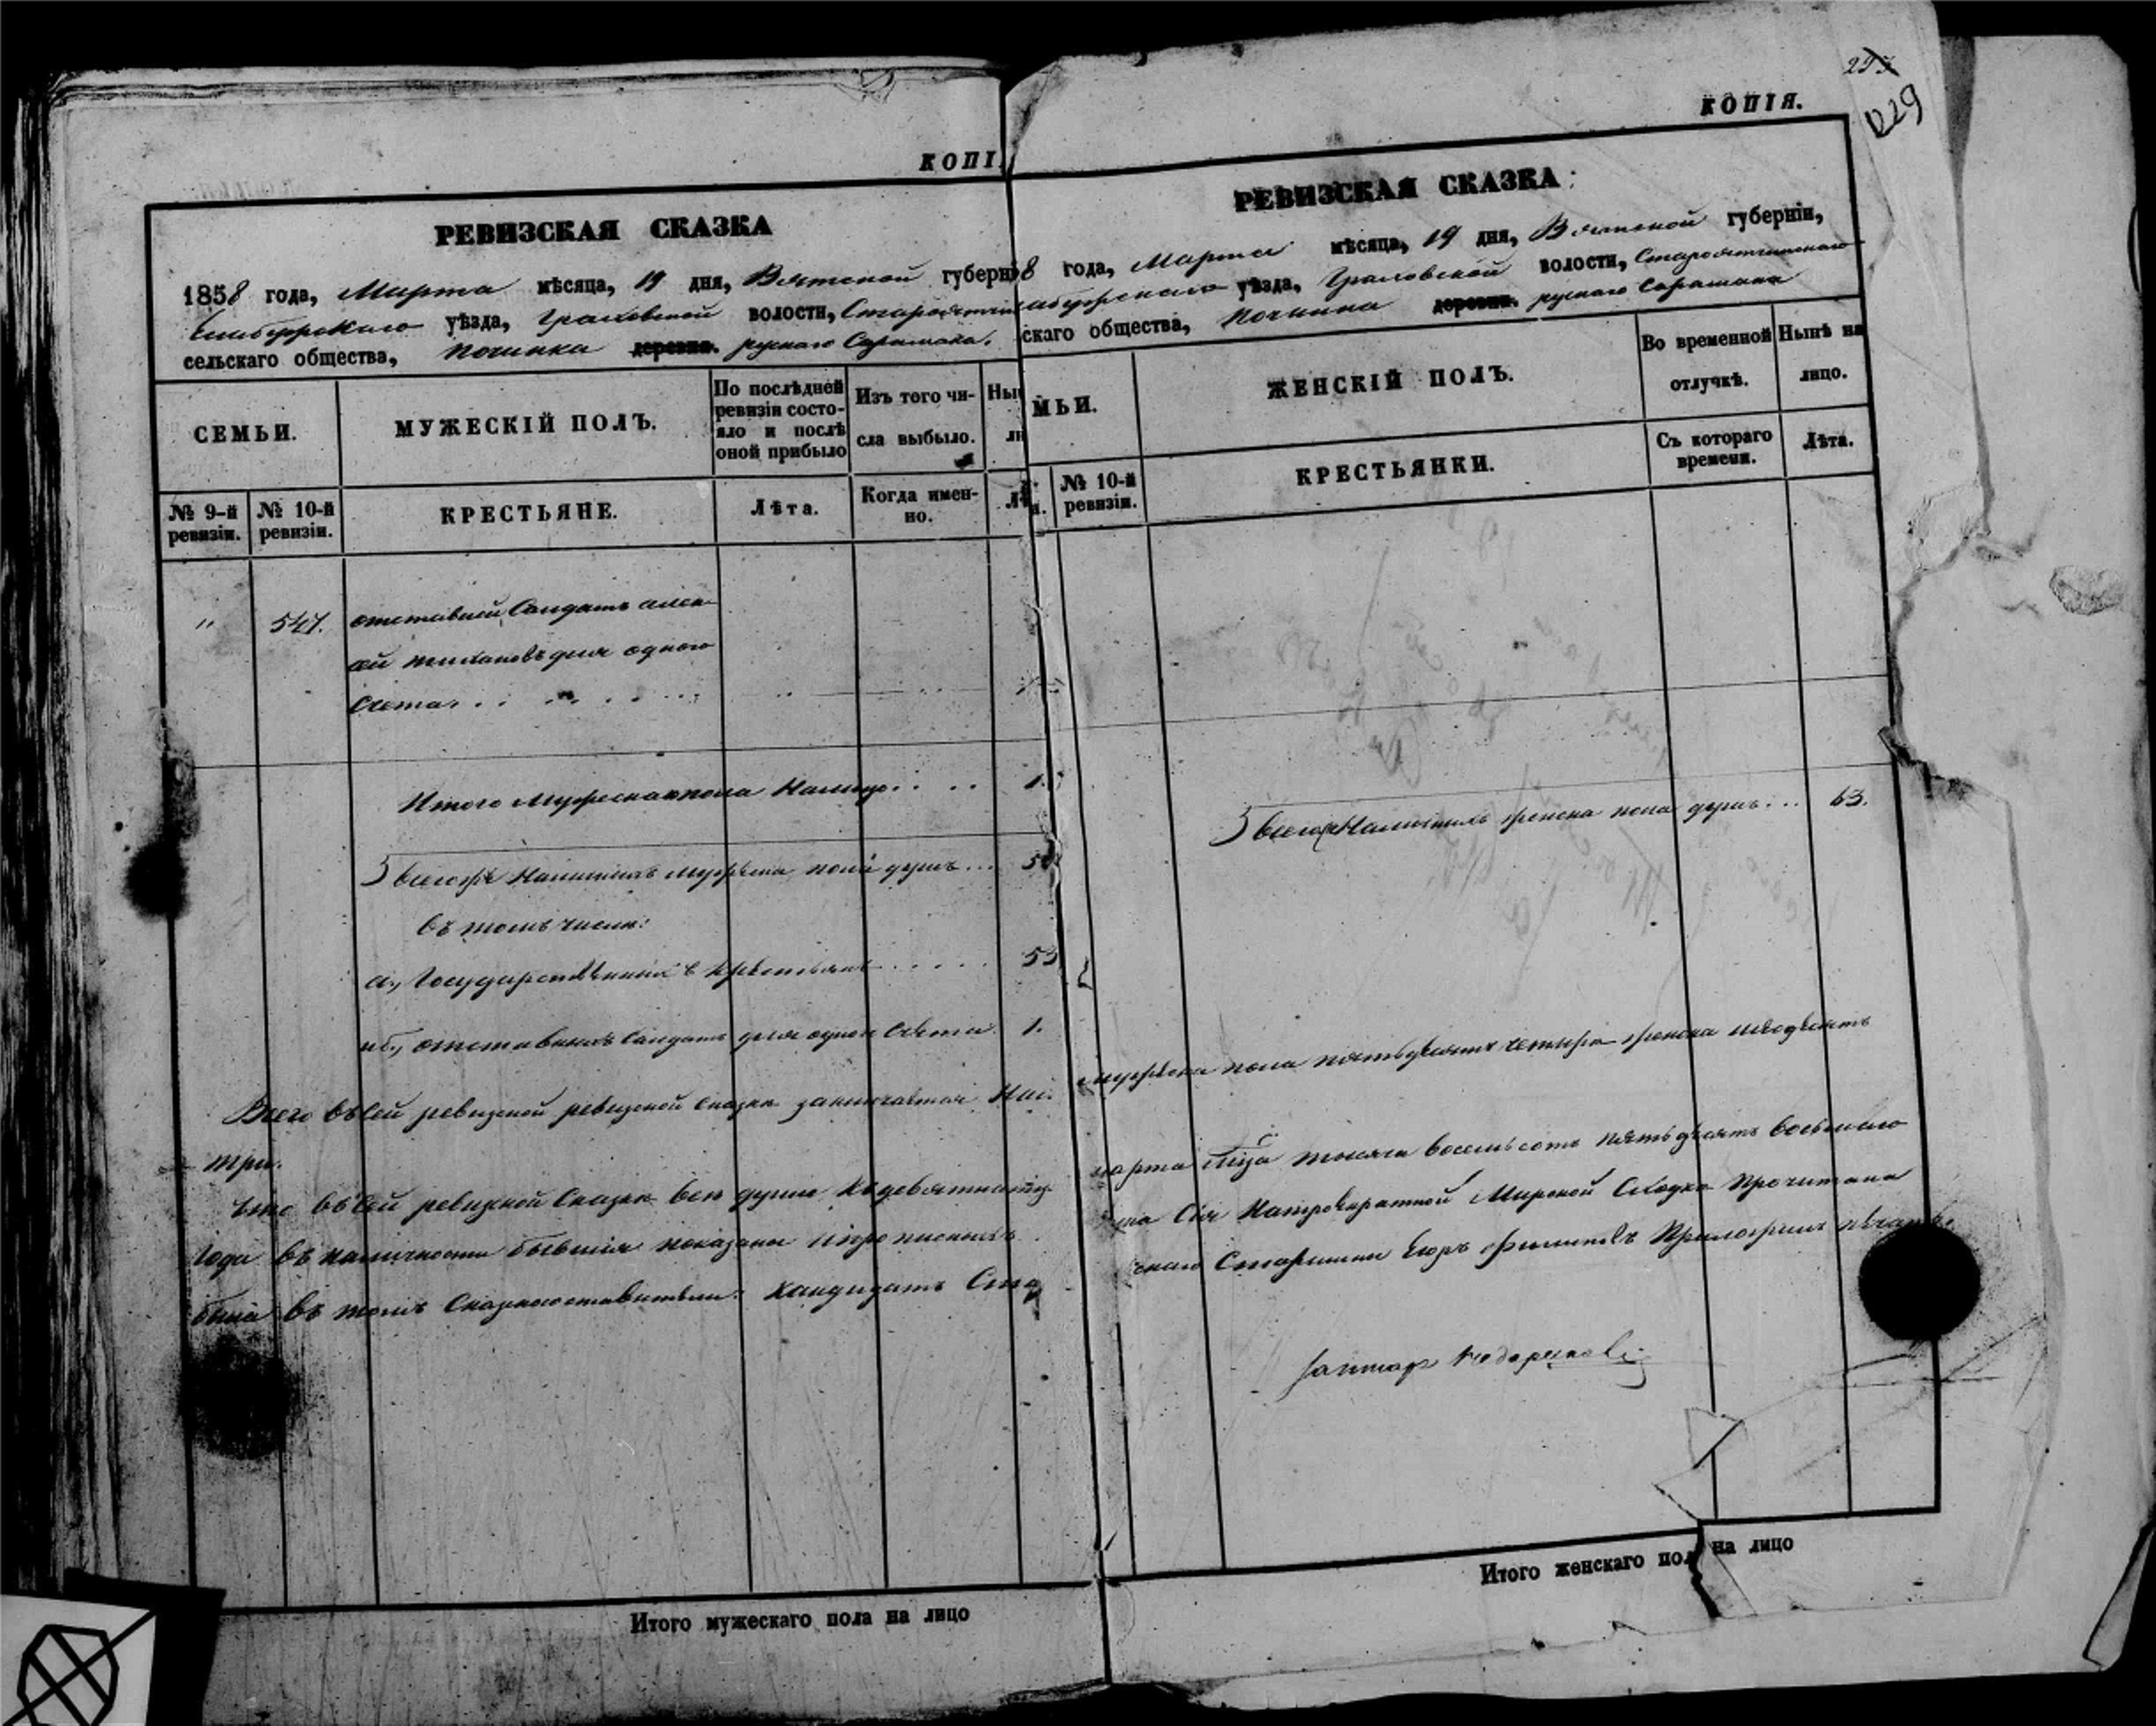 КОПІ
РЕВИЗСКАЯ СКАЗКА
1858 года, Марта мѣсяца, 19 дня, Вятской губерні
Елабужскаго уѣзда, Граховской волости, Старо
сельскаго общества, починка деревни. рускаго Сарамака.
СЕМЬИ.
МУЖЕСКІЙ ПОЛЪ.
По послѣдней ревизіи состояло и послѣ оной прибыло
Изъ того числа выбыло.
Ны
ли
№ 9-й ревизіи.
№ 10-й ревизіи.
КРЕСТЬЯНЕ.
Лѣта.
Когда именно.
Лѣ
" 547. отставной Солдатъ Алек
ѣй для одного
счета
1.
Итого мужеска пола налицо 1.
Всего наличныхъ мужеска пола душъ
въ томъ числѣ:
а., Государственныхъ крестьянъ 53
и б., отставныхъ Солдатъ для одного счета 1.
Всего въ сей ревизской ревизской сказкѣ заключается
три.
Что въ сей ревизской Сказкѣ всѣ души къ девятнатц
года въ наличности бывшія показаны
была въ томъ Сказкосоставители: кандидатъ
КОПІЯ.
229
РЕВИЗСКАЯ СКАЗКА
8 года, Марта мѣсяца, 19 дня, Вятской губерніи,
абужскаго уѣзда, Граховской волости,
скаго общества, Починка деревни. рускаго Сарамака
МЬИ.
ЖЕНСКІЙ ПОЛЪ.
Во временной отлучкѣ.
Нынѣ на лицо.
№ 10-й ревизіи.
КРЕСТЬЯНКИ.
Съ котораго времени.
Лѣта.
Всего наличныхъ женска пола душъ 63.
мужеска пола пятьдесятъ четыре женска шесдесятъ
марта тысяча восемьсотъ пятьдесятъ восьмаго
Сія Мирской Сходкѣ прочитана
Старшины Егоръ Филиповъ Приложилъ печать.
Итого мужескаго пола на лицо
Итого женскаго пол на лицо